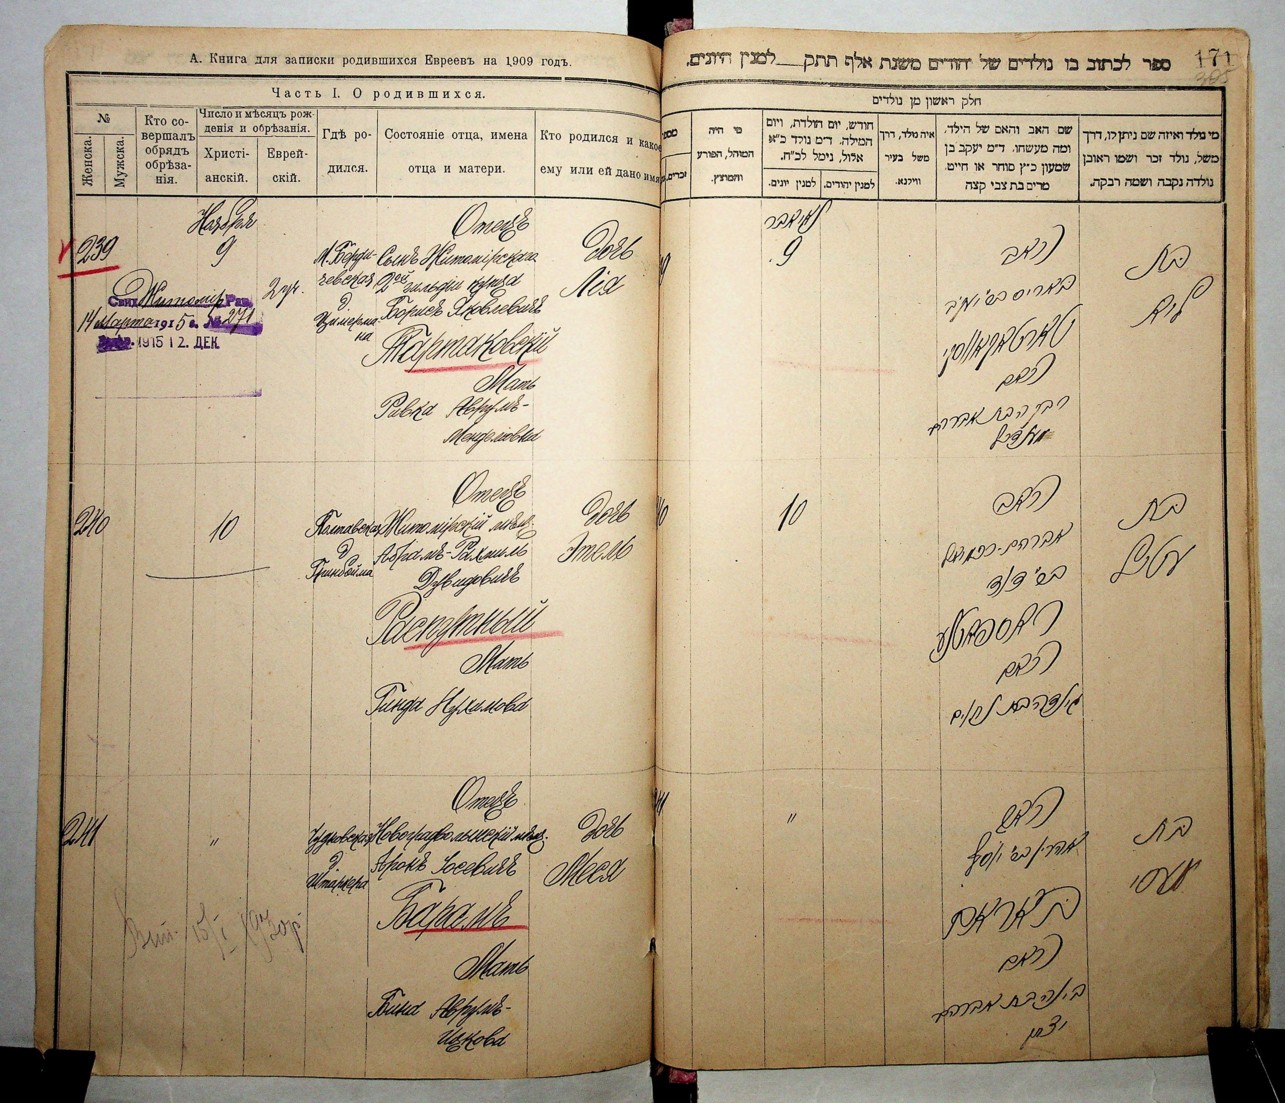 А. Книга для записки родившихся Евреевъ на 1909 годъ.
Часть I. О родившихся.
№
Женска.
Мужска.
Кто со-
вершалъ
обрядъ
обрѣза-
нія.
Число и мѣсяцъ рож-
денія и обрѣзанія.
Христі-
анскій.
Еврей-
скій.
Гдѣ ро-
дился.
Состояніе отца, имена
отца и матери.
Кто родился и какое
ему или ей дано имя
Ноября
239
9
Отецъ
М. Берди-
чевская
д.
Цимерма-
на
Сынъ Житомірскаго
2ой гильдіи купца
Борисъ Яковлевичъ
Тартаковскій
Мать
Ривка Аврумъ-
Менделовна
Дочь
Лія
Свид. Житомір Рав.
14 марта 1915 г. № 271
1915 12. ДЕК
240
10
Полтавская
д
Гринбойма
Отецъ
Житомірскій мѣщ.
Абрамъ-Рахмиль
Дувидовичъ
Распутный
Мать
Гинда Нухимова
Дочь
Этель
241
"
Чудновская
д
Штаркера
Отецъ
Новоградволынскій мѣщ.
Аронъ Іосевичъ
Барамъ
Мать
Бина Аврумъ-
Ицкова
Дочь
Меся
ספר לכתוב בו נולדים של יהודים משנת אלף תתק___למנין היונים.
171
305
חלק ראשון מן נולדים
מי היה
המוהל, הפורע
והמוצץ.
חודש, יום הולדת, ויום
המילה. ד״מ נולד כ״א
אלול, נימל לכ״ח.
למנין יהודים.
למנין יונים.
איה נולד, דרך
משל בעיר
ווילנא.
שם האב והאם של הילד.
ומה מעשהו. ד״מ יעקב בן
שמעון כ״ץ סוחר או חיים.
מרים בת צבי קצה
מי נולד ואיזה שם ניתן לו, דרך
משל, נולד זכר ושמו ראובן
נולדה נקבה ושמה רבקה.
נאיאבר
9
האב
טארטאקאווסקי
האם
רבקה בת אברהם
מענדיל
בת
ליא
10
האב
אברהם-ירחמיאל
בש׳ דוד
ראספאטנע
האם
גינדה בת נחום
בת
עטיל
"
האב
אהרן בש׳ יוסף
באראם
האם
בינה בת אברהם
יצחק
בת
מעסי